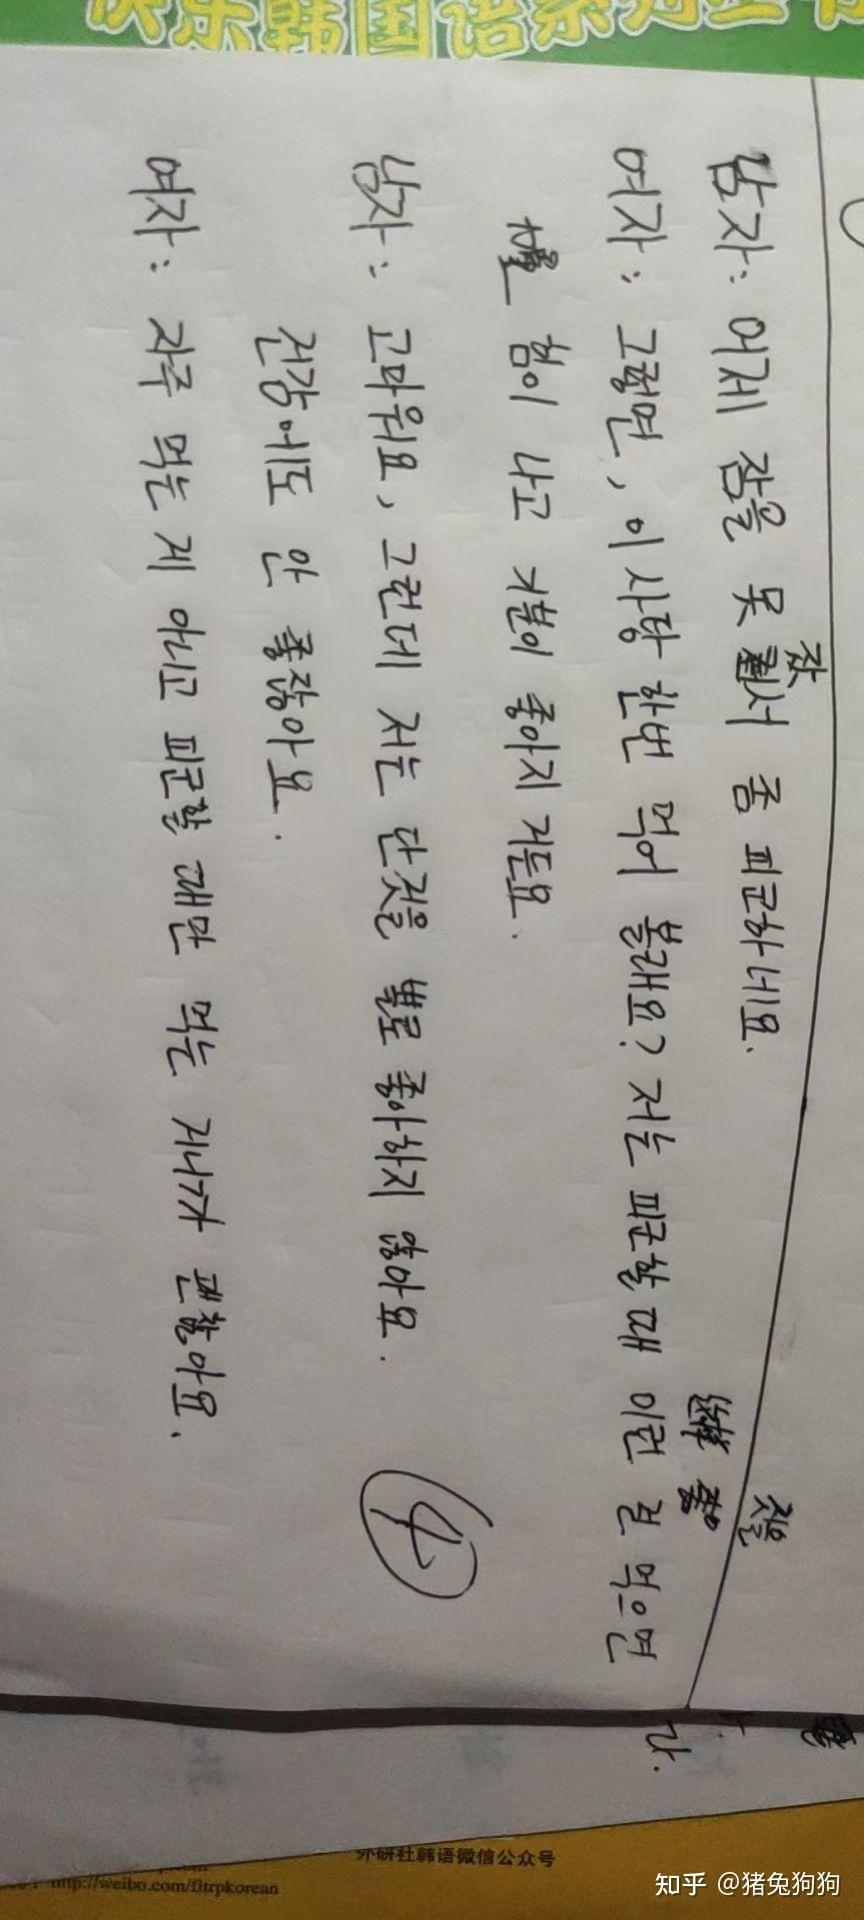 快乐韩国语系列丛书
남자: 어제 잠을 못 자서 좀 피곤하네요.
여자: 그럼면, 이 사탕 한번 먹어 볼래요? 저는 피곤할 때 이런 걸 먹으면
힘이 나고 기분이 좋아지거든요.
남자: 고마워요, 그런데 저는 단것을 별로 좋아하지 않아요.
건강에도 안 좋잖아요.
여자: 자주 먹는 게 아니고 피곤할 때만 먹는 거니까 괜찮아요.
4
것을
다.
外研社韩语微信公众号
http://weibo.com/fltrpkorean
知乎 @猪兔狗狗